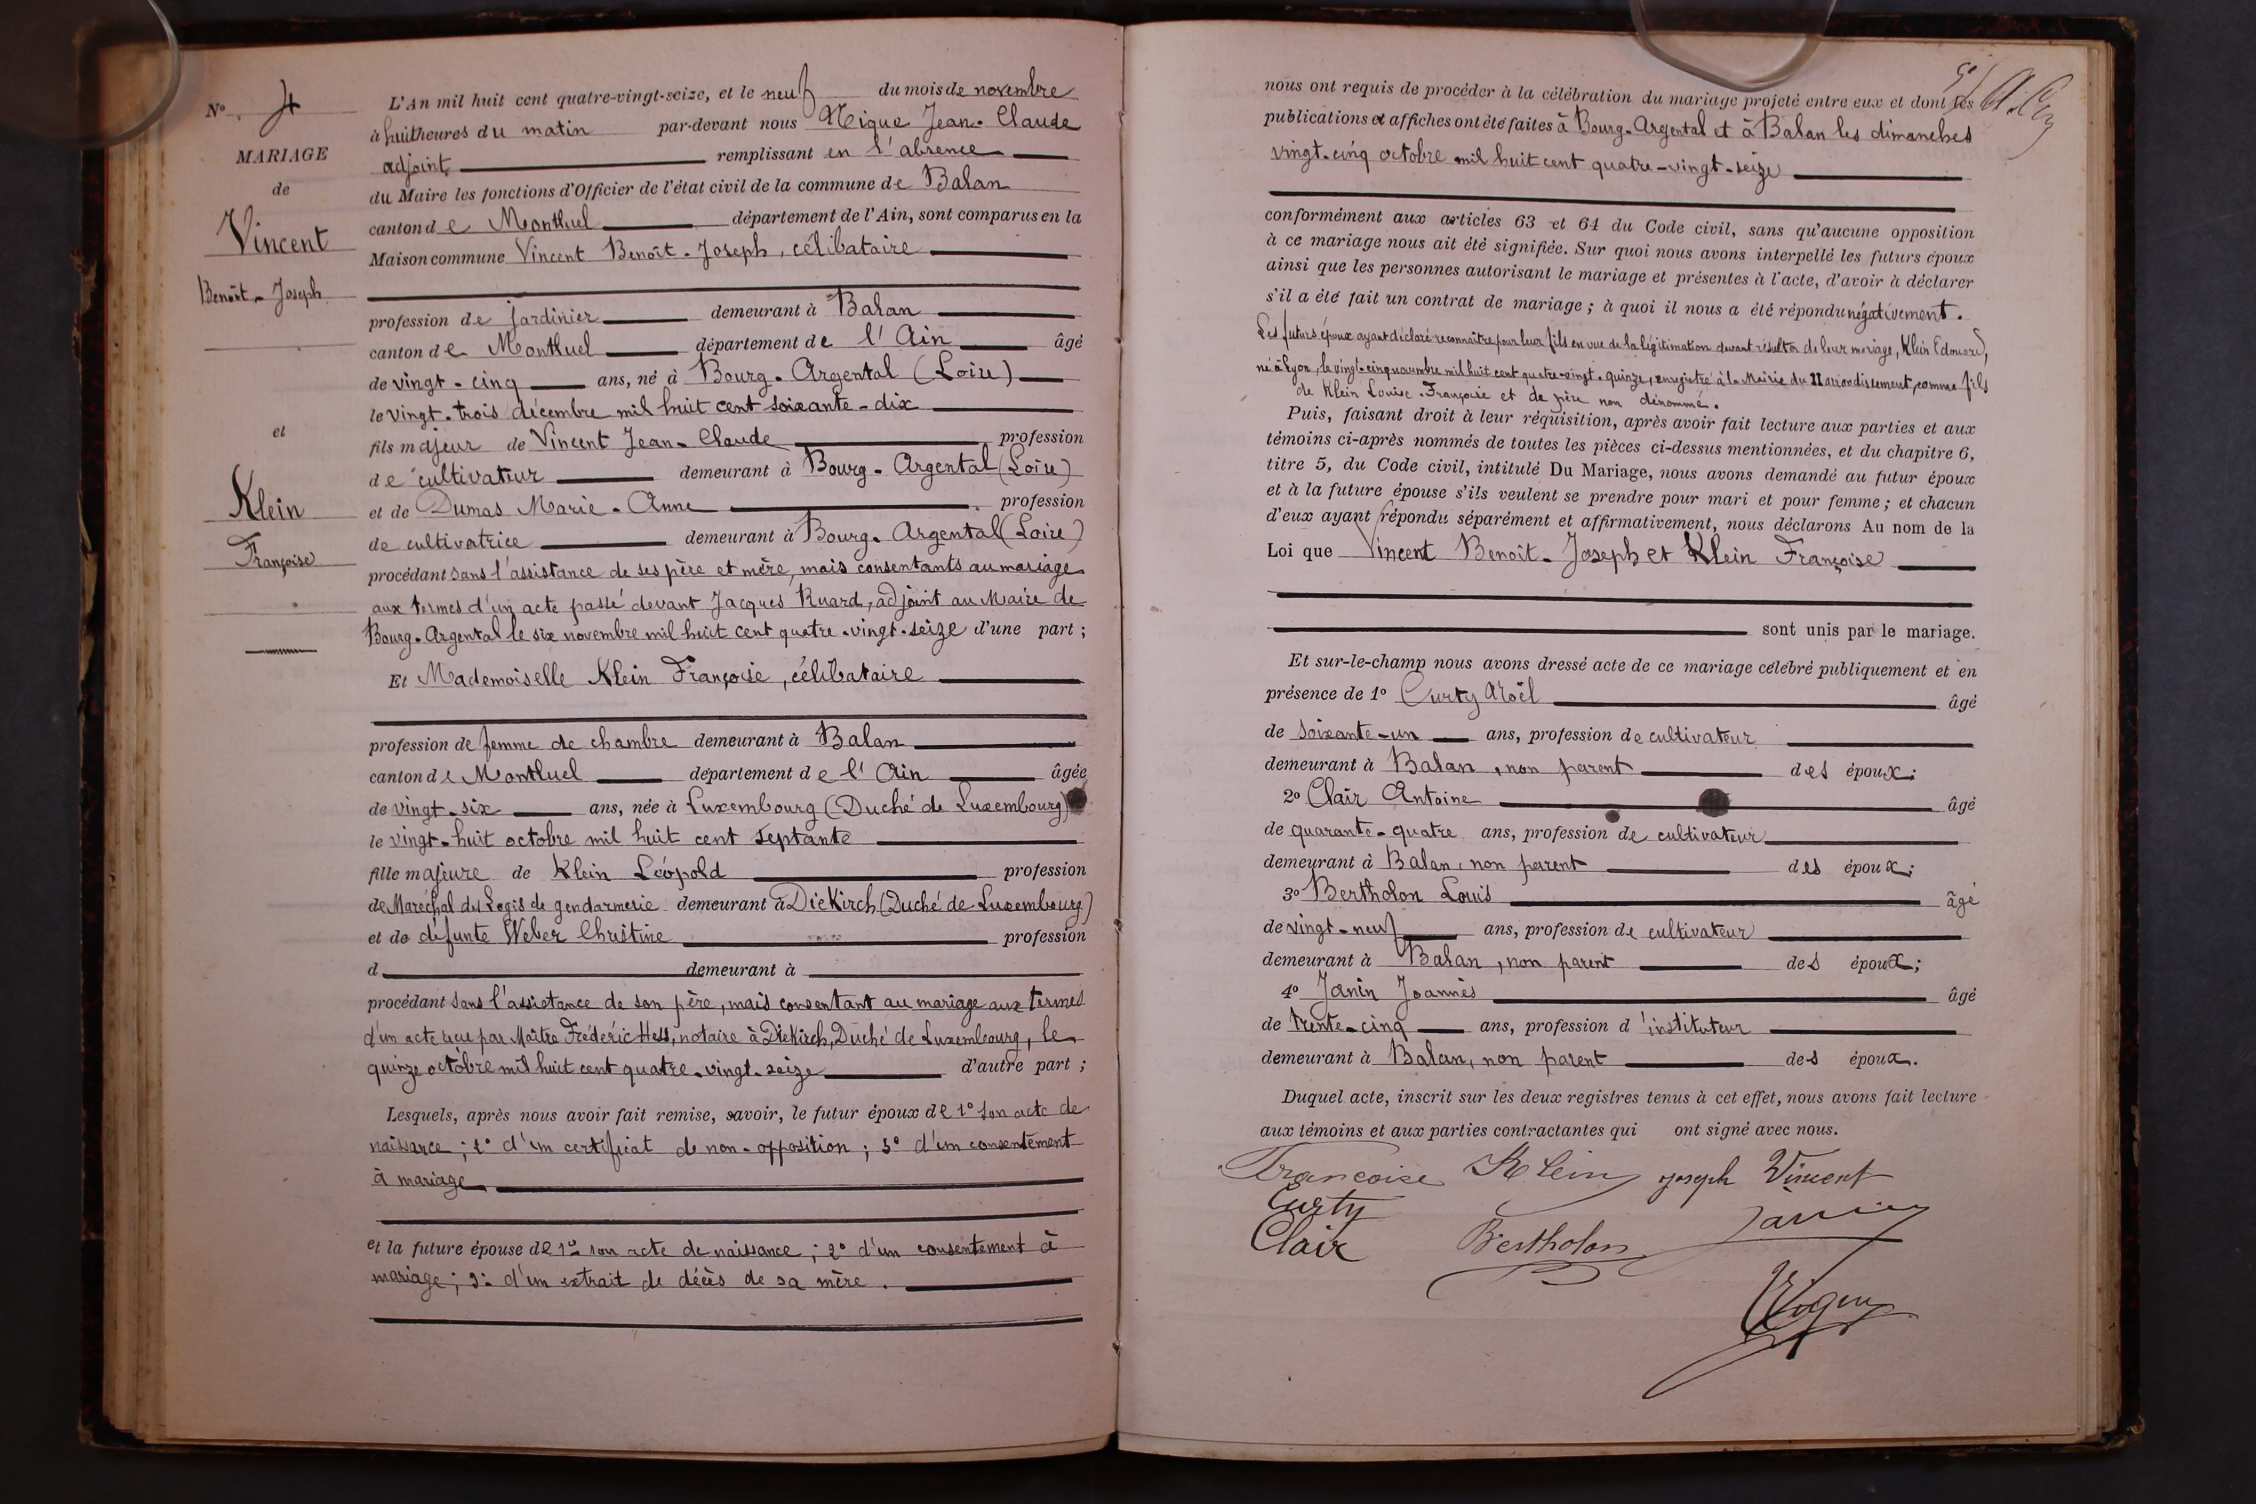 N° 4
MARIAGE
de
Vincent
Benoît-Joseph
et
Klein
Françoise
L'An mil huit cent quatre-vingt-seize, et le neuf du mois de novembre
à huit heures du matin par-devant nous Nique Jean-Claude
adjoint remplissant en l'absence
du Maire les fonctions d'Officier de l'état civil de la commune de Balan
canton de Montluel département de l'Ain, sont comparus en la
Maison commune Vincent Benoît-Joseph, célibataire
profession de jardinier demeurant à Balan
canton de Montluel département de l'Ain âgé
de vingt-cinq ans, né à Bourg-Argental (Loire)
le vingt-trois décembre mil huit cent soixante-dix
fils majeur de Vincent Jean-Claude profession
de cultivateur demeurant à Bourg-Argental (Loire)
et de Dumas Marie-Anne profession
de cultivatrice demeurant à Bourg-Argental (Loire)
procédant sans l'assistance de ses père et mère, mais consentants au mariage
aux termes d'un acte passé devant Jacques Ruard, adjoint au Maire de
Bourg-Argental le six novembre mil huit cent quatre-vingt-seize d'une part ;
Et Mademoiselle Klein Françoise, célibataire
profession de femme de chambre demeurant à Balan
canton de Montluel département de l'Ain âgée
de vingt-six ans, née à Luxembourg (Duché de Luxembourg)
le vingt-huit octobre mil huit cent septante
fille majeure de Klein Léopold profession
de Maréchal des Logis de gendarmerie demeurant à Diekirch (Duché de Luxembourg)
et de défunte Weber Christine profession
d demeurant à
procédant sans l'assistance de son père, mais consentant au mariage aux termes
d'un acte reçu par Maître Frédéric Hess, notaire à Diekirch, Duché de Luxembourg, le
quinze octobre mil huit cent quatre-vingt-seize d'autre part ;
Lesquels, après nous avoir fait remise, savoir, le futur époux de 1° son acte de
naissance ; 2° d'un certificat de non-opposition ; 3° d'un consentement
à mariage
et la future épouse de 1° son acte de naissance ; 2° d'un consentement à
mariage ; 3° d'un extrait de décès de sa mère.
nous ont requis de procéder à la célébration du mariage projeté entre eux et dont les
publications et affiches ont été faites à Bourg-Argental et à Balan les dimanches
vingt-cinq octobre mil huit cent quatre-vingt-seize
conformément aux articles 63 et 64 du Code civil, sans qu'aucune opposition
à ce mariage nous ait été signifiée. Sur quoi nous avons interpellé les futurs époux
ainsi que les personnes autorisant le mariage et présentes à l'acte, d'avoir à déclarer
s'il a été fait un contrat de mariage ; à quoi il nous a été répondu négativement.
Les futurs époux ayant déclaré reconnaître pour leur fils en vue de la légitimation devant résulter de leur mariage, Klein Edouard,
né à Lyon, le vingt-cinq novembre mil huit cent quatre-vingt-quinze, enregistré à la Mairie du II arrondissement, comme fils
de Klein Louise-Françoise et de père non dénommé.
Puis, faisant droit à leur réquisition, après avoir fait lecture aux parties et aux
témoins ci-après nommés de toutes les pièces ci-dessus mentionnées, et du chapitre 6,
titre 5, du Code civil, intitulé Du Mariage, nous avons demandé au futur époux
et à la future épouse s'ils veulent se prendre pour mari et pour femme ; et chacun
d'eux ayant répondu séparément et affirmativement, nous déclarons Au nom de la
Loi que Vincent Benoît-Joseph et Klein Françoise
sont unis par le mariage.
Et sur-le-champ nous avons dressé acte de ce mariage célébré publiquement et en
présence de 1° Curty Noël âgé
de soixante-un ans, profession de cultivateur
demeurant à Balan, non parent des époux ;
2° Clair Antoine âgé
de quarante-quatre ans, profession de cultivateur
demeurant à Balan, non parent des époux ;
3° Bertholon Louis âgé
de vingt-neuf ans, profession de cultivateur
demeurant à Balan, non parent des époux ;
4° Janin Joannès âgé
de trente-cinq ans, profession d'instituteur
demeurant à Balan, non parent des époux.
Duquel acte, inscrit sur les deux registres tenus à cet effet, nous avons fait lecture
aux témoins et aux parties contractantes qui ont signé avec nous.
Francoise Klein Joseph Vincent
Curty
Clair Bertholon Janin